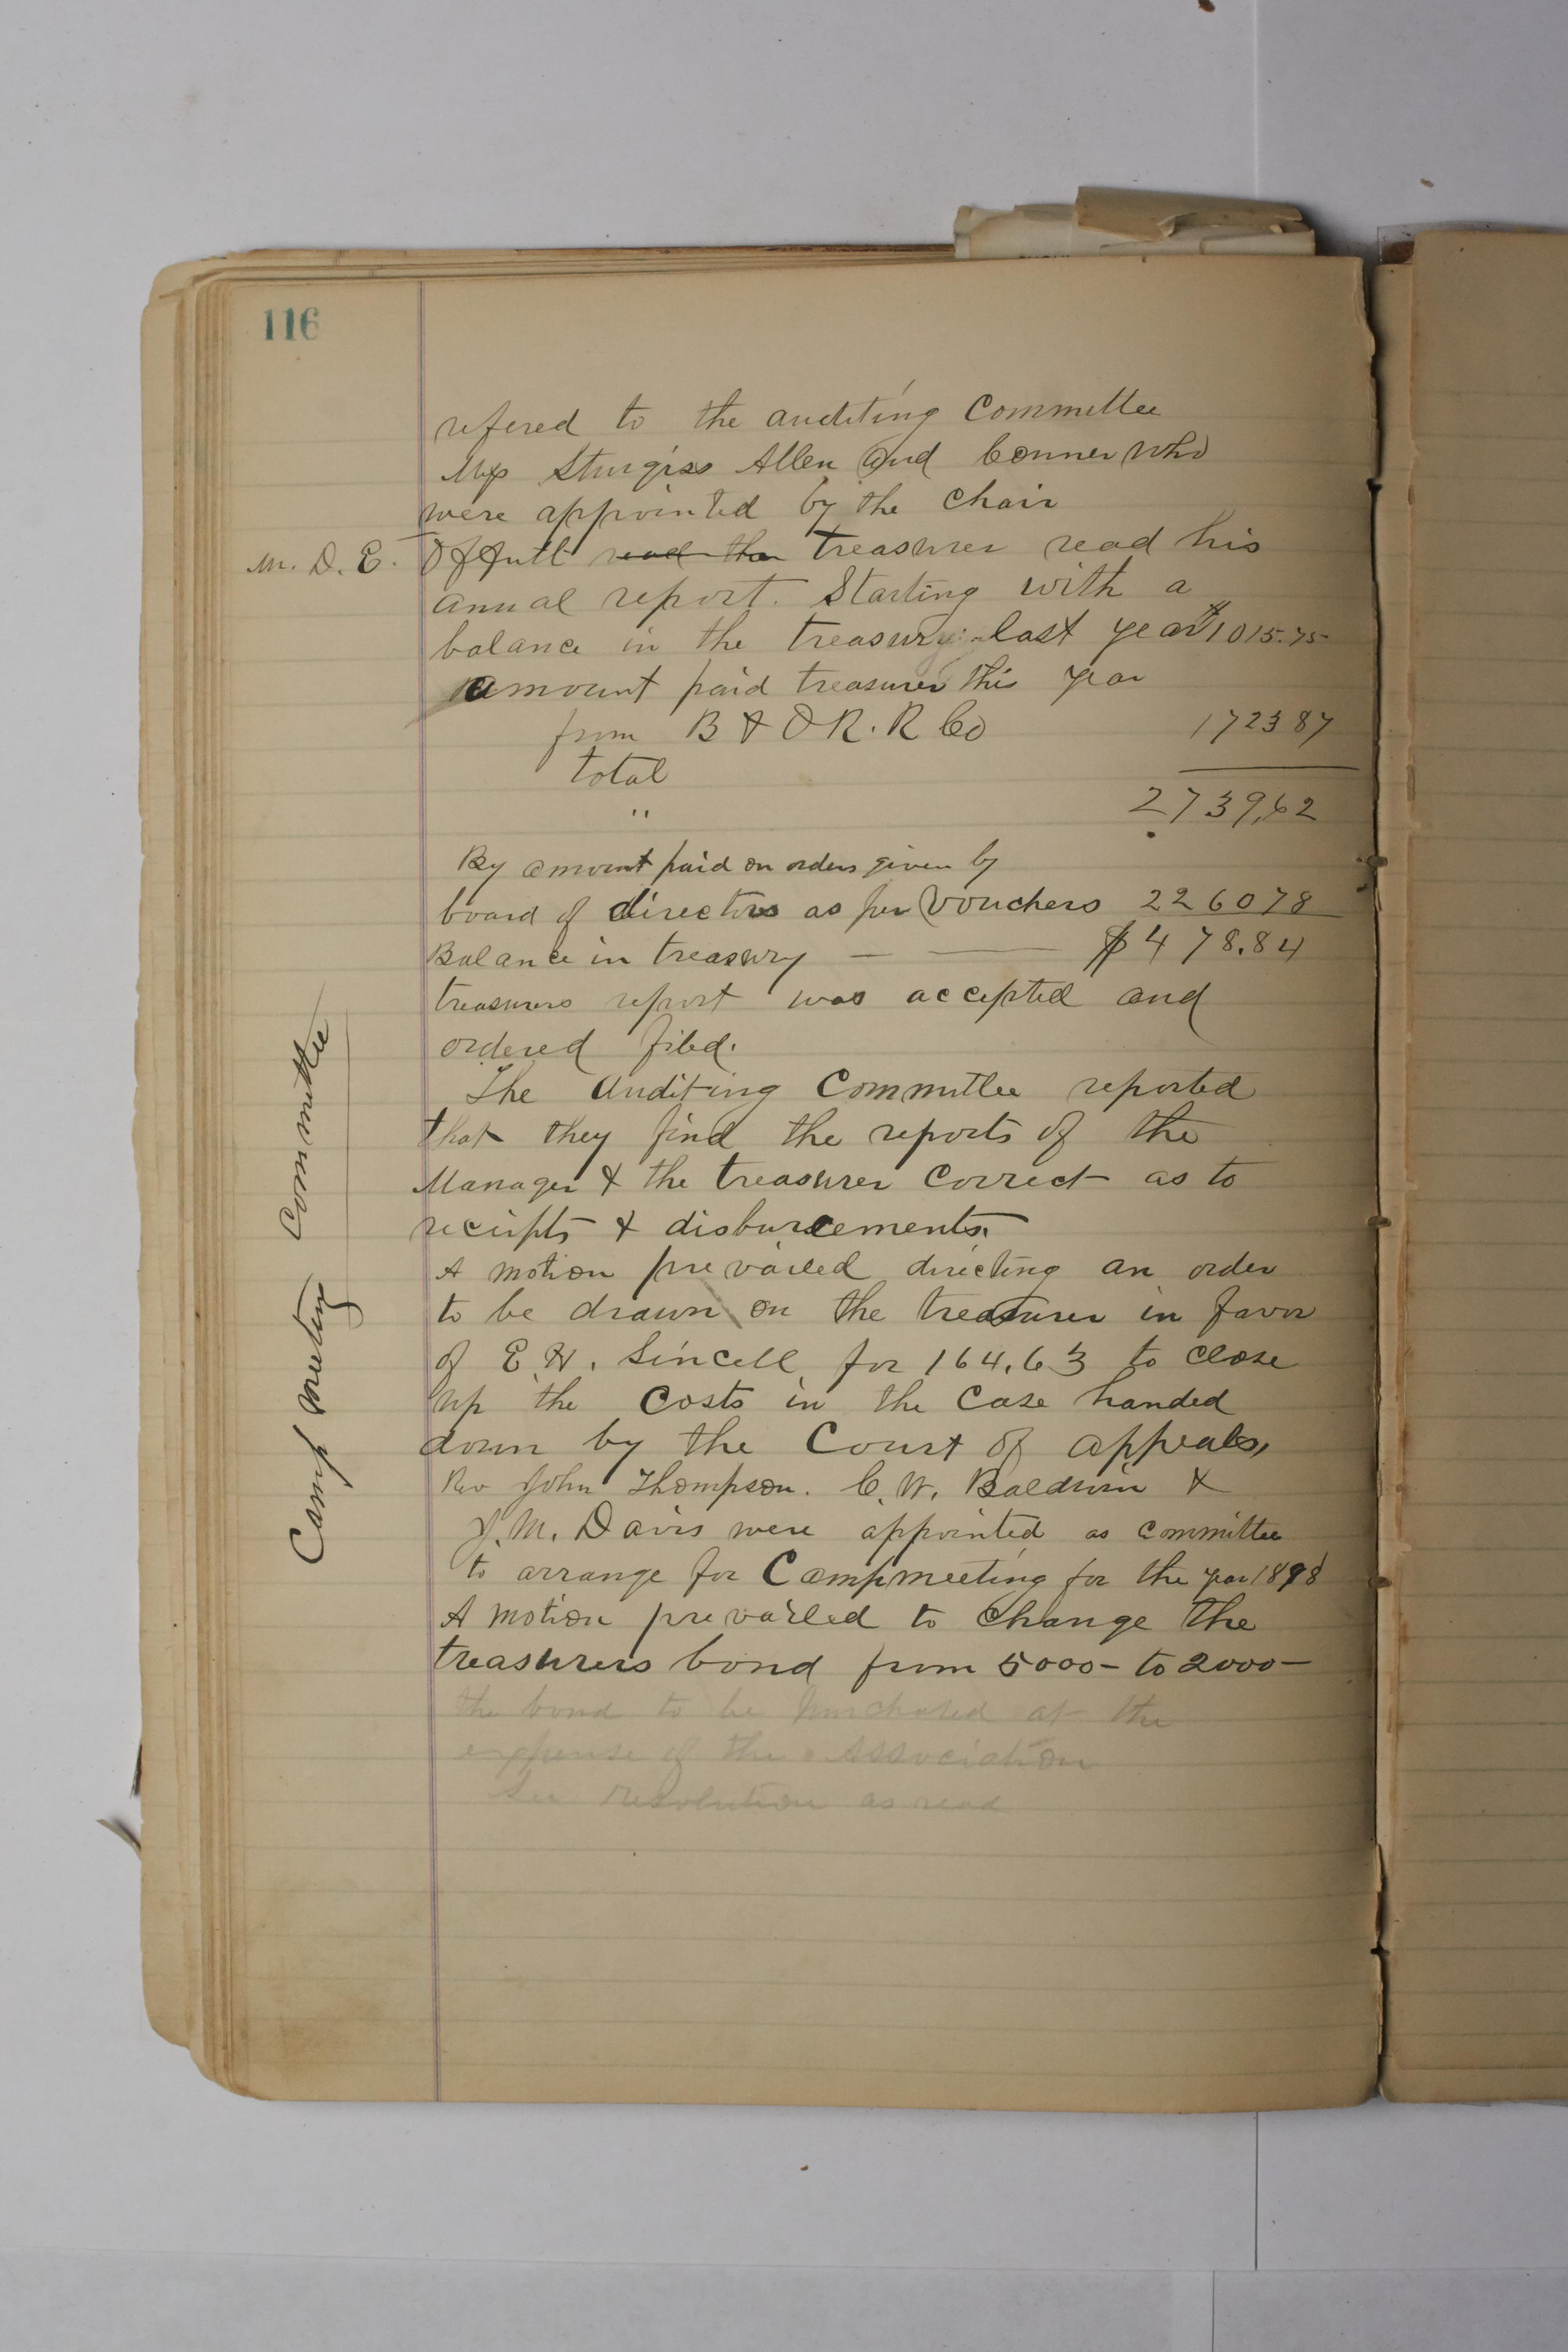 116
refered to the auditing Committee
Sturgiss Allen and Conner who
were appointed by the chair
M. D. E. Offutt read the treasurer read his
annual report. Starting with a
balance in the treasury last year $1015.75
amount paid treasurer this year
from B & O R. R Co 1723 87
total
" 2739,62
By amount paid on orders given by
board of directors as per vouchers 2260 78
Balance in treasury — — $478.84
treasurers report was accepted and
ordered filed.
The Auditing Committee reported
that they find the reports of the
Manager & the treasurer Correct as to
reciepts & disburcements.
A motion prevailed directing an order
to be drawn on the treasurer in favor
of E. H. Sincell for 164.63 to close
up the Costs in the Case handed
down by the Court of appeals,
Rev John Thompson. C. W. Baldwin &
J. M. Davis were appointed as Committee
to arrange for Campmeeting for the year 1898
A motion prevailed to change the
treasurers bond from 5000- to 2000-
the bond to be purchased at the
expense of the Association
See resolution as read
Camp Meeting Committee